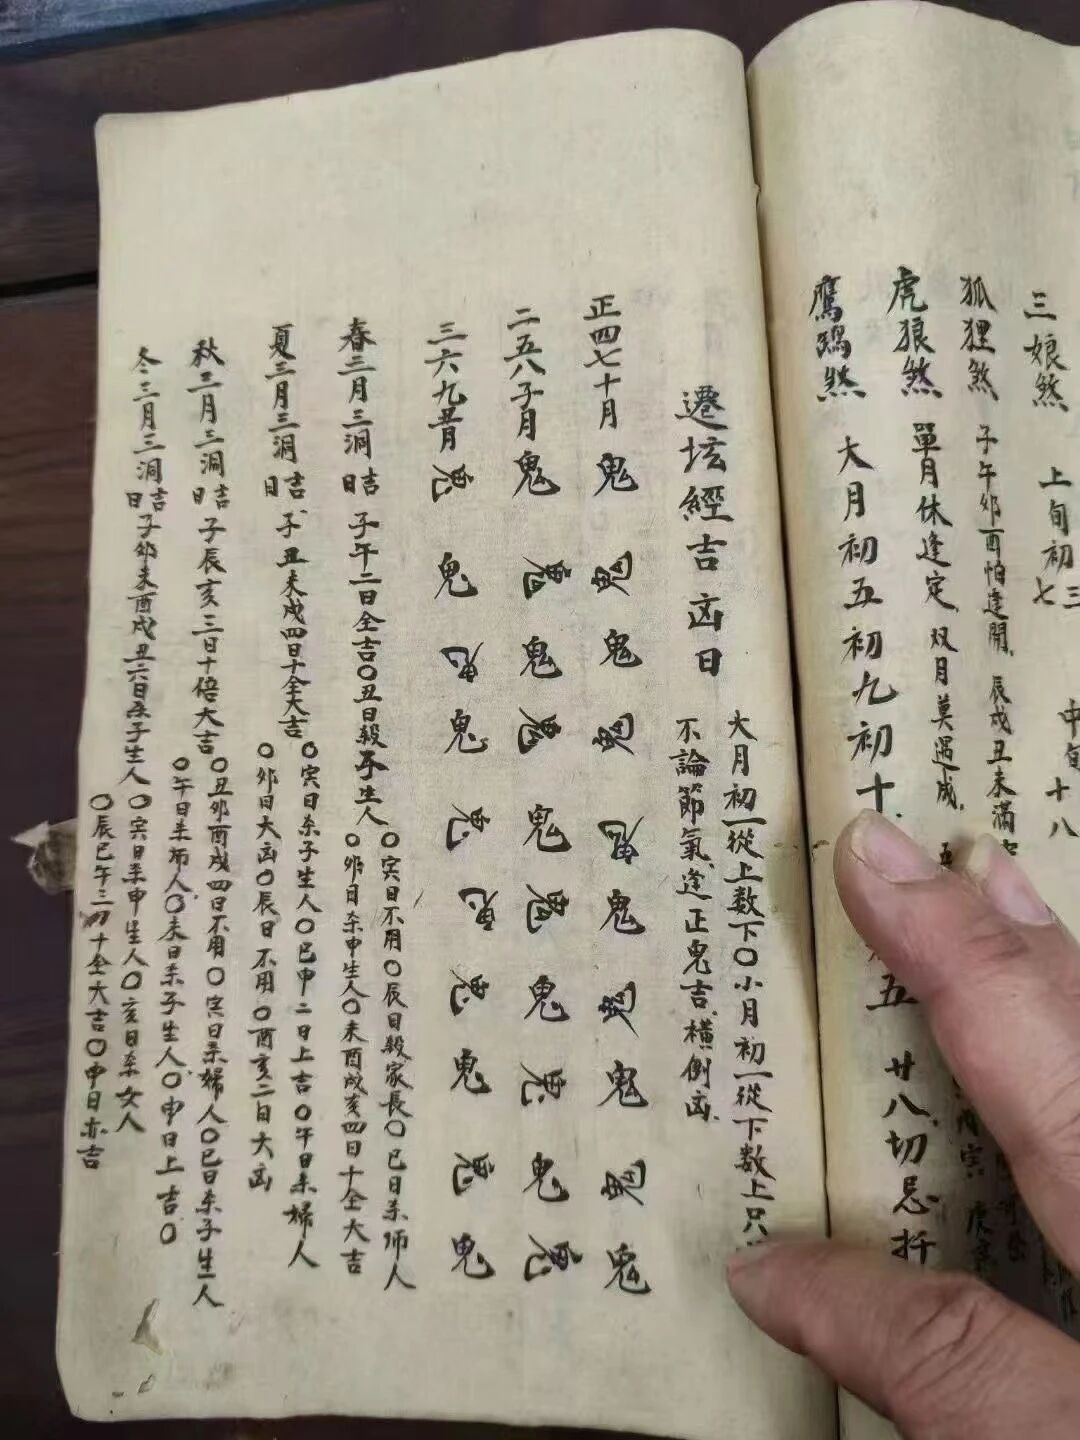 三娘煞 上旬初三 七 中旬十八
狐狸煞 子午卯酉怕逢開 辰戌丑未滿
虎狼煞 單月休逢定 双月莫遇成
鷹鵶煞 大月初五初九初十 五 廿八切忌扦
遷坛經吉凶日
大月初一從上数下〇小月初一從下数上只
不論節氣 逢正鬼吉 橫倒凶
正四七十月 鬼 鬼 鬼 鬼 鬼 鬼 鬼 鬼 鬼 鬼
二五八子月 鬼 鬼 鬼 鬼 鬼 鬼 鬼 鬼 鬼 鬼
三六九丑月 鬼 鬼 鬼 鬼 鬼 鬼 鬼 鬼 鬼 鬼
春三月三洞吉日 子午二日全吉〇丑日殺子生人
〇寅日不用〇辰日殺家長〇巳日杀师人
〇卯日杀申生人〇未酉戌亥四日十全大吉
夏三月三洞吉日 子丑未戌四日十全大吉
〇寅日杀子生人〇巳申二日上吉〇午日杀婦人
〇卯日大凶〇辰日不用〇酉亥二日大凶
秋三月三洞吉日 子辰亥三日十倍大吉
〇丑卯酉戌四日不用〇寅日杀婦人〇巳日杀子生人
〇午日杀师人〇未日杀子生人〇申日上吉〇
冬三月三洞吉日 子卯未酉戌丑六日杀子生人
〇寅日杀申生人〇亥日杀女人
〇辰巳午三日十全大吉〇申日亦吉